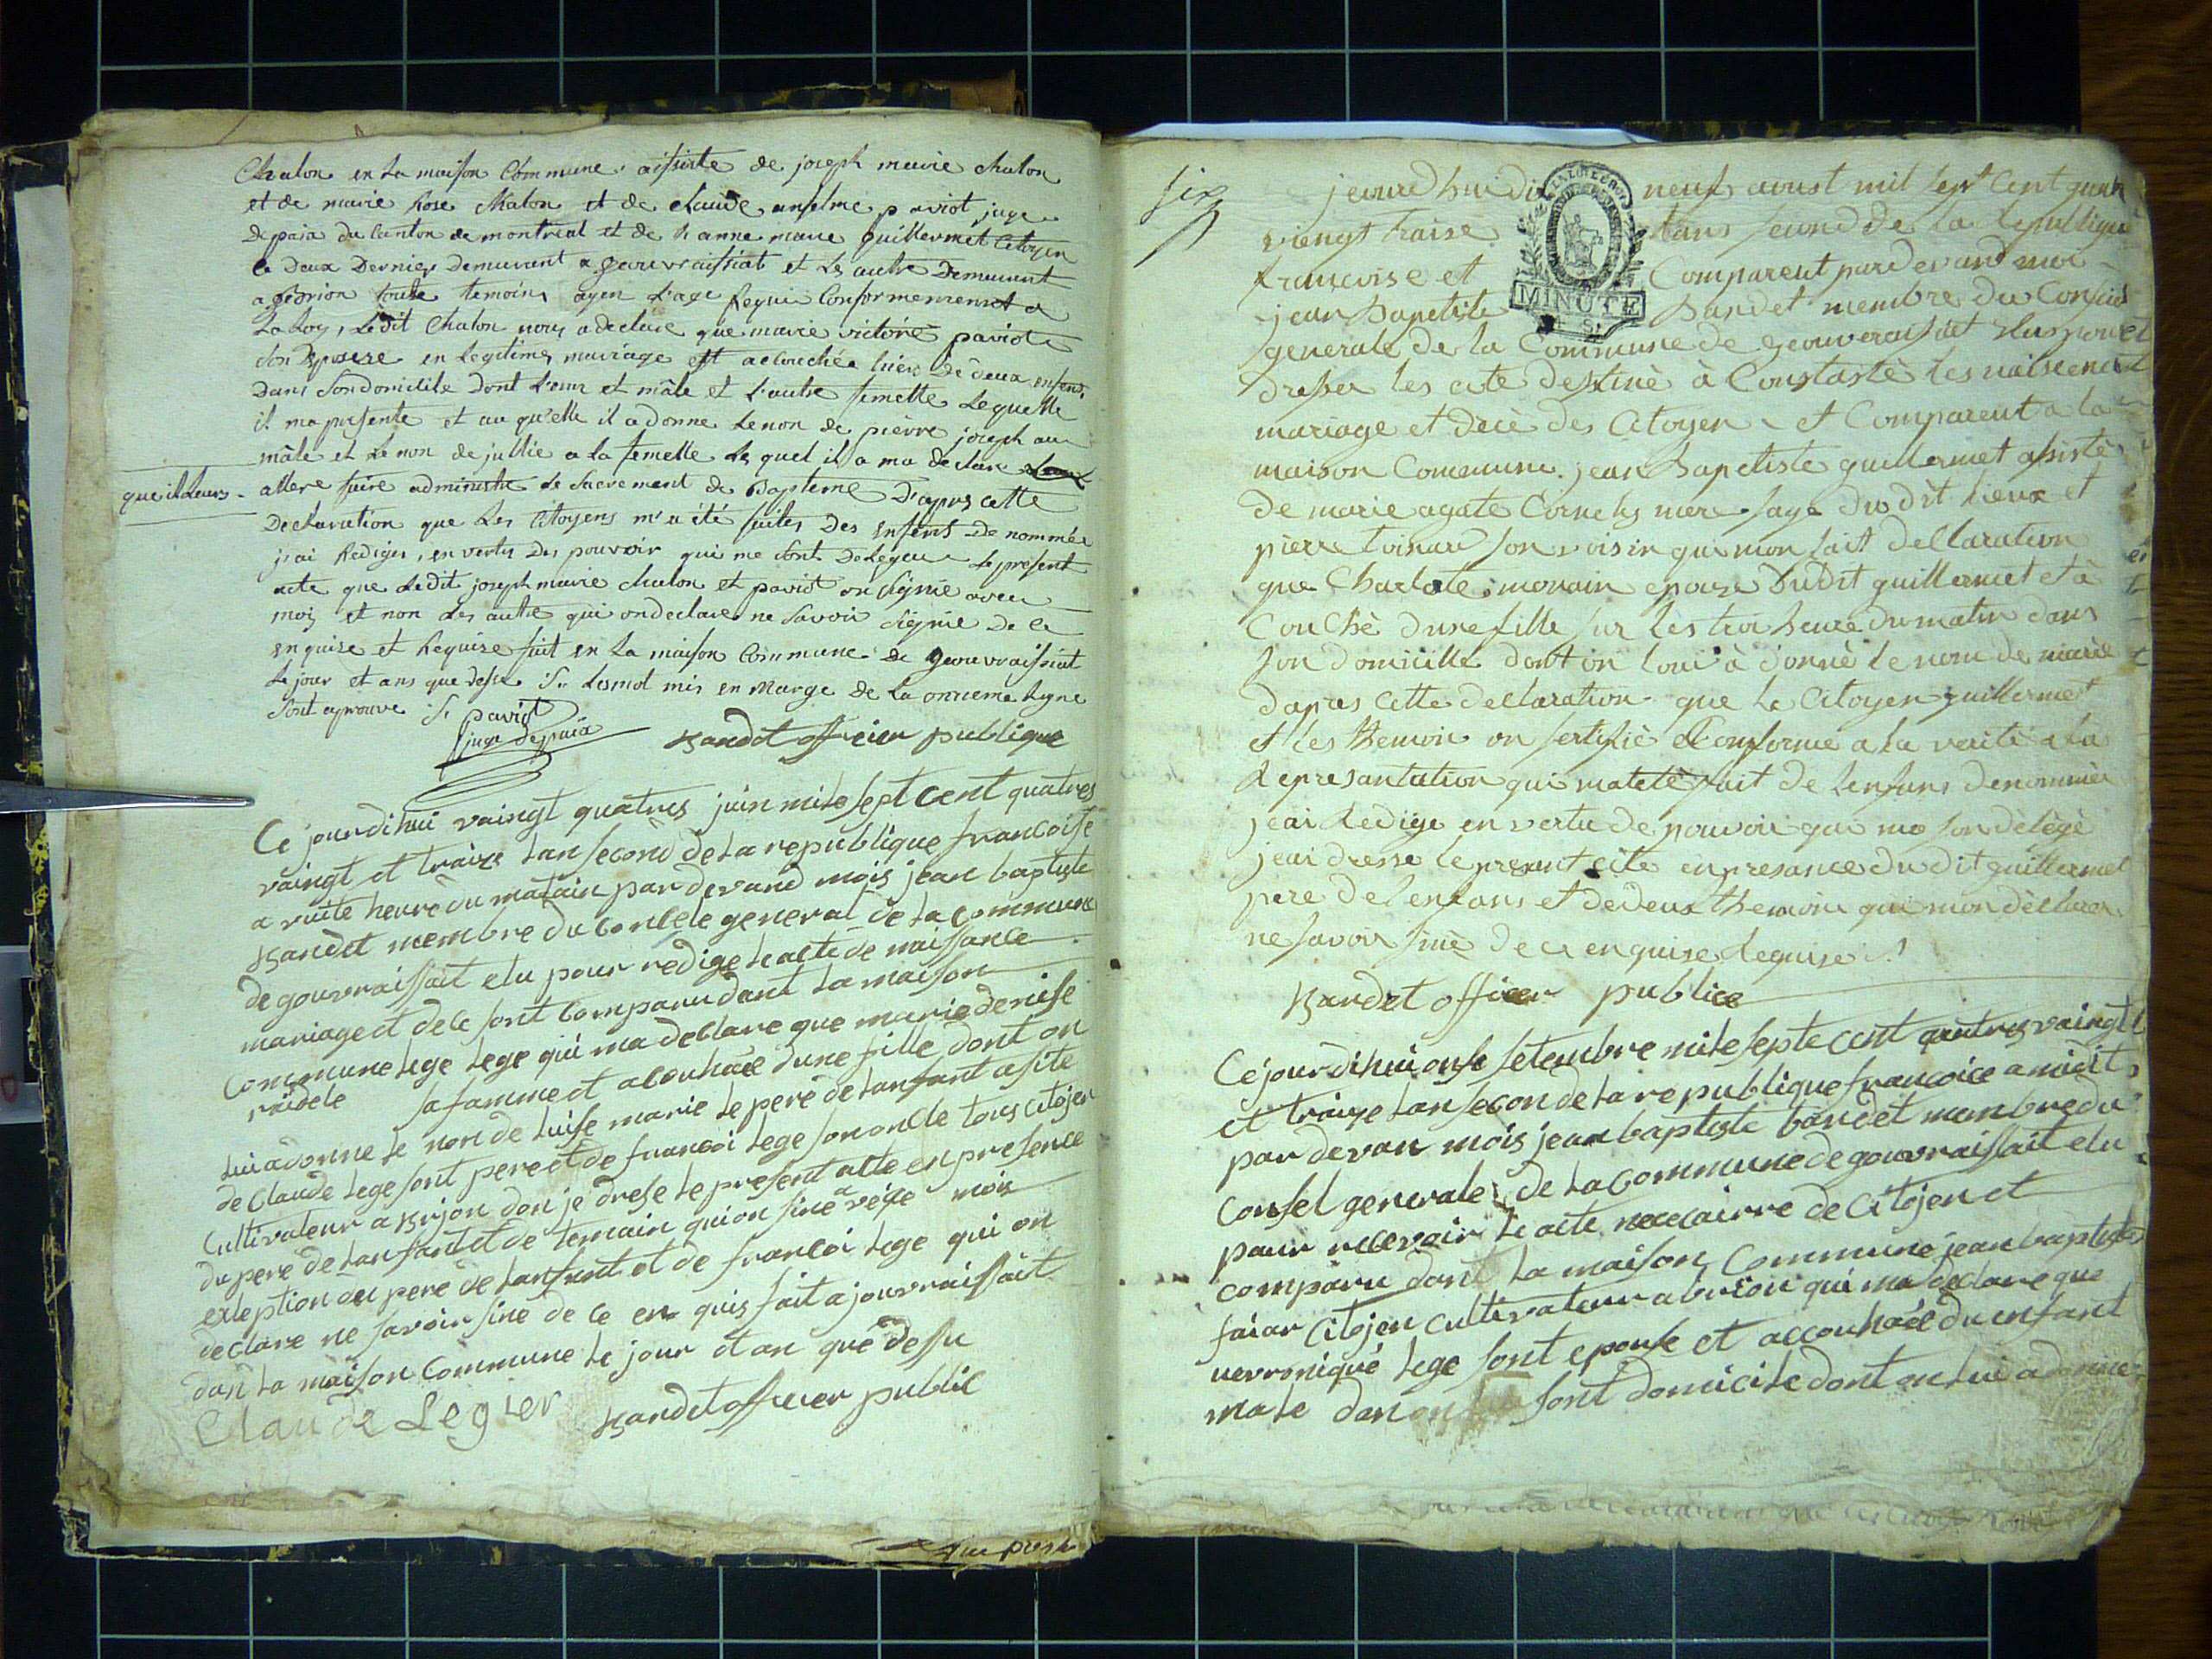 Chalon en La maison Commune assiste de joseph marie chalon
et de marie Rose chalon et de claude anselme paviot juge
depaia du Canton de montreal et de anne marie guillermet Citoyen
Le deux Dernier demurant a geouvraissiat et Les autre Demurant
a toute temoins ayen L'age Requi Conformement a
La Loy, Ledit Chalon nous a declare que marie victoire paviot
Son Epouse en Legitime mariage est accouchée hier De deux enfens,
Dans Sondomicile Dont L'eun et mâle et L'autre femelle Lequelle
il ma presente et au qu'elle il a donne Lenon de pierre joseph au
mâle et Le non de jullie a La femelle Les quel il a ma declare
que il Leurs
allere faire administre Le Sacrement de Bapteme D'apres cette
Declaration que Les Citoyens m'a été faites Des enfens De nommée
j'ai Rediger, en vertus Des pouvoir qui me Sont Delegue Le present
acte que Ledit joseph marie chalon et paviot on Signie avec
moy et non Les autre qui ondeclare ne Savoir Signie De ce
enquise et Requise fait en La maison Commune De geouvraissiat
Le jour et ans que dessu Les mot mis en Marge de La onzieme Ligne
Sont aprouve paviot
juge depaia
Bandet officier publique
Ce jourdihui vaingt quatres juin mile sept cent quatres
vaingt et traize Lan second de La republique francoise
a vuite heure du matain par devand mois jean baptiste
Bandet membre du Consele general de La commune
de gouvraissait elu pour redige Le acte de naissance
mariage et dece sont comparu dant La maison
Commune Lege Lege qui ma declare que marie denise
raidele sa famme et acouhaee dune fille dont on
Lui a donne Le non de Luise marie Le pere de Lanfant asite
de Claude Lege sont pere et de francoi Lege son oncle tous citojen
Cultivateur a Brjon don je drese Le present acte en presence
du pere de Lanfant et de temain qui on sine a veige mois
exleption du pere de Lanfant et de francoi Lege qui on
declare ne savoir sine de ce en quis fait a jouvraissait
dan La maison Commune Le jour et an que dessu
Claude Legier Bandet officier public
six
jeourdhui dix neuf aoust mil sept Cent quatre
viengt traise Lans second de La Republique
francoise et Comparent pardevand moi
jean Bapetiste Bandet membre du Conseil
MINUTE
generale de la Commune de geouveraissiat
dresser les acte destiné à Constasté les naissence
mariage et decè des Citoyen et Comparent a la
maison Commune jean Bapetiste guillermet assisté
de marie agate Cornet mere sage du dit lieux et
pierre son voisin qui mon fait declaration
que Charlote monain epouze Dudit guillermet et à
Couché dune fille sur les troi heure dumatin dans
Son domicille dont on loui à donné le nom de marie
dapres cette declaration que le Citoyen guillermet
et les themoin on sertifié Conforme a la verité a la
Representation qui matété fait de lenfans denommée
jeai Redige en vertu de pouvoir qui mo son délégé
jeai dresse le present acte enpresance du dit guillermet
pere de lenfans et dedeux themoin qui mon déclarer
ne savoir siné de ce enquise Requise
Bandet officer publice
Ce jourdihui onse setembre mile septe cent quatres vaingt
et traize Lan secon de La republique francoice a midit
par devan mois jean baptiste bandet manbre du
Consel generale de La commune de gouvraissait elu
pour recevoir Le acte nececairre de Citojen et
comparu dant La maison Commune jean baptiste
faiar Citojen cultivateur a brion qui ma declare que
verronique Lege sont epouse et accouhaée du enfant
male dan sont domicile dont on Lui a donne